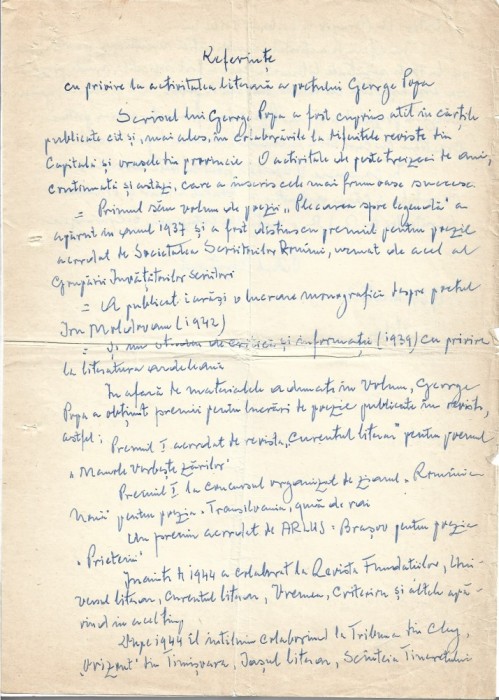 Referințe
cu privire la activitatea literară a poetului George Popa
Scrisul lui George Popa a fost cuprins atît în cărțile
publicate cît și, mai ales, în colaborările la diferitele reviste din
Capitală și orașele din provincie. O activitate de peste treizeci de ani,
continuată și astăzi, care a înscris cele mai frumoase succese
= Primul său volum de poezii „Plecarea spre legendă" a
apărut în anul 1937 și a fost distins cu premiul pentru poezie
acordat de Societatea Scriitorilor Români, urmat de acel al
Grupării Învățătorilor Scriitori
= A publicat iarăși o lucrare monografică despre poetul
Ion Moldoveanu (1942)
= Și un de critică și informații (1939) cu privire
la literatura ardeleană
În afară de materialele adunate în volum, George
Popa a obținut premii pentru lucrări de poezie publicate în reviste,
astfel:
Premiul I acordat de revista „Curentul literar" pentru poemul
„Manole vorbește zărilor"
Premiul I la concursul organizat de ziarul „România
Nouă" pentru poezia „Transilvania, gură de rai
Un premiu acordat de ARLUS = Brașov pentru poezia
„Prietenii"
Înainte de 1944 a colaborat la Revista Fundațiilor, Uni-
versul literar, Curentul literar, Vremea, Criterion și altele apă-
rînd în acel timp
După 1944 îl întîlnim colaborînd la Tribuna din Cluj,
„Orizont" din Timișoara, Iașul literar, Scînteia Tineretului